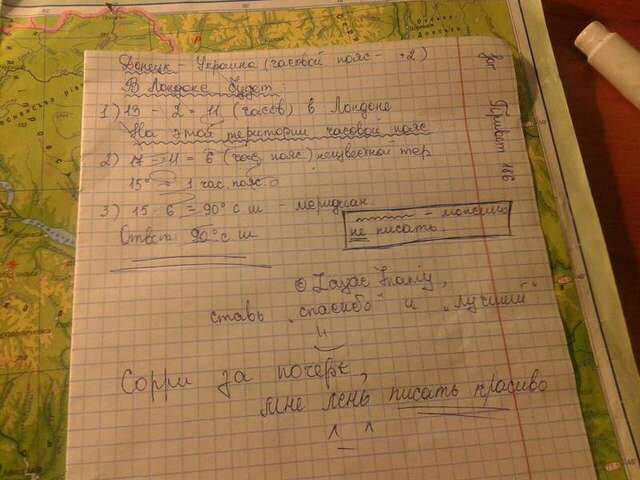 Донецк - Украина (часовой пояс - +2)
В Лондоне будет:
1) 13 - 2 = 11 (часов) в Лондоне
На этой територии часовой пояс
2) 17 - 11 = 6 (час. пояс) неизвестной тер
15° = 1 час. пояс.
3) 15 · 6 = 90° с ш - меридиан
- можешь
не писать.
Ответ: 90° с ш
ставь "спасибо" и "лучший"
Сорри за почерк,
мне лень писать красиво
^ ^
Привит